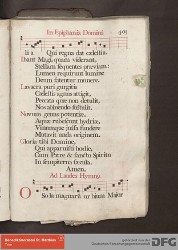 In Epiphania Domini 401
li a Qui regna dat cælestia.
Ibant Magi, quam viderant,
Stellam sequentes præviam:
Lumen requirunt lumine
Deum fatentur munere.
Lavacra puri gurgitis
Cælestis agnus attigit,
Peccata quæ non detulit,
Nos abluendo sustulit.
Novum genus potentiæ,
Aquæ rubescunt hydriæ,
Vinumque jussa fundere
Mutavit unda originem.
Gloria tibi Domine,
Qui apparuisti hodie,
Cum Patre & sancto Spiritu
In sempiterna sæcula.
Amen.
Ad Laudes Hymnus
O Sola magnarum urbium Major
DFG